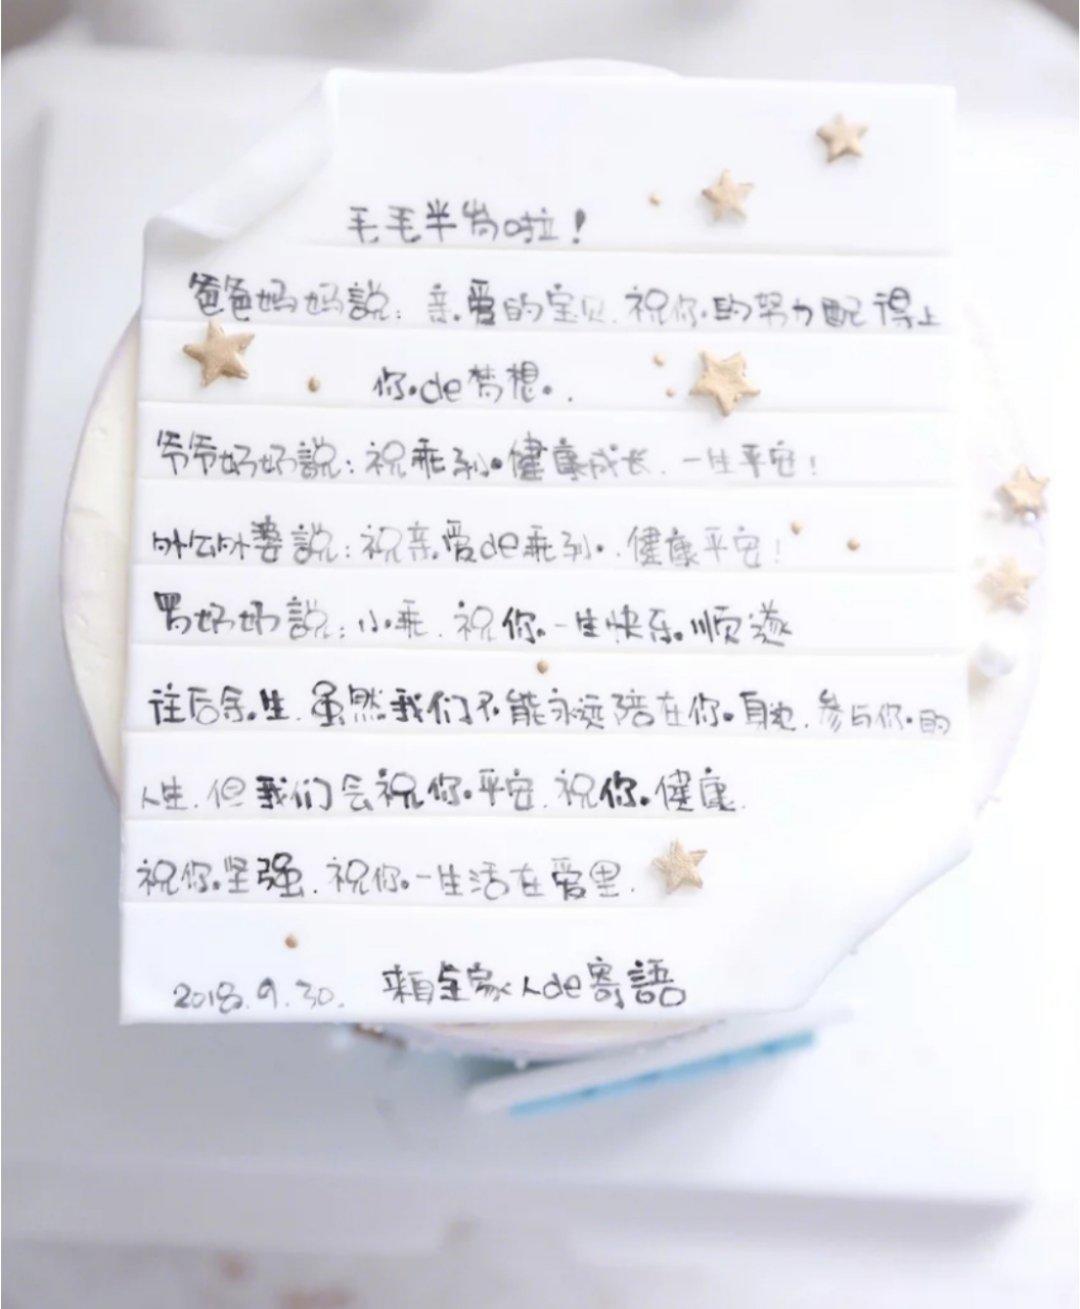 毛毛半岁啦！
爸爸妈妈說：亲爱的宝贝.祝你的努力配得上
你de梦想.
爷爷奶奶說：祝乖孙健康成长.一生平安！
外公外婆說：祝亲爱de乖孙.健康平安！
奶奶說：小乖.祝你一生快乐顺遂
往后余生.虽然我们不能永远陪在你身边.参与你的
人生.但我们会祝你平安.祝你健康.
祝你坚强.祝你一生活在爱里.
2018.9.30. 來自全家人de寄語